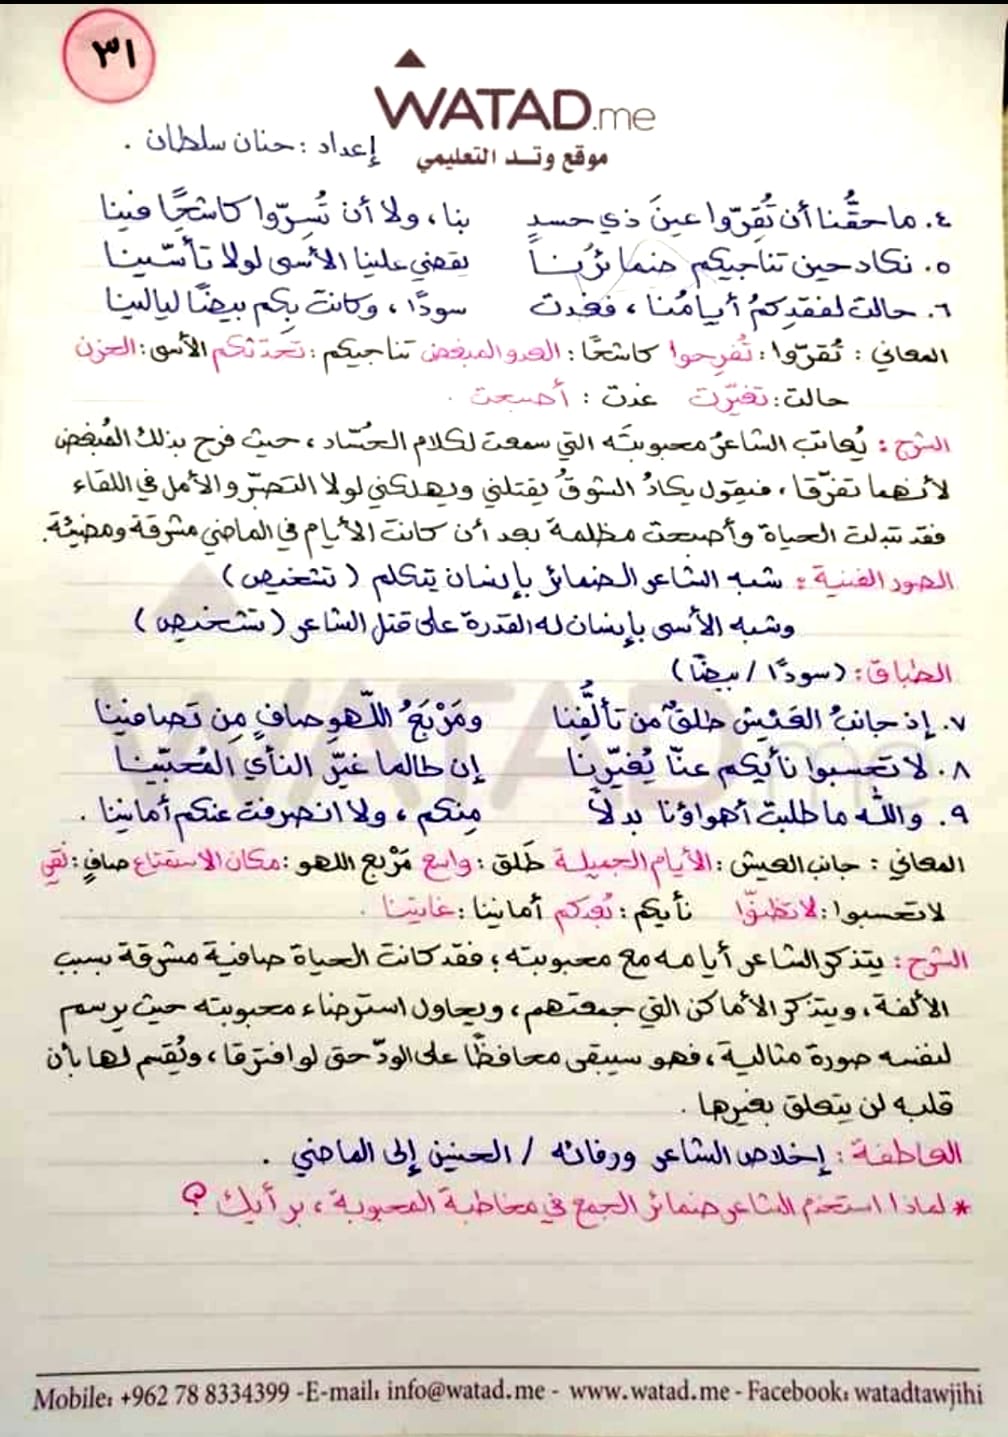 ٣١
WATAD.me
موقع وتــد التعليمي
إعداد : حنان سلطان .
٤. ما حقُّنا أن تُقِرّوا عينَ ذي حسدٍ بنا ، ولا أن تُسِرّوا كاشحًا فينا
٥. نكاد حين تناجيكم ضمائرُنــا يقضي علينا الأسى لولا تأسّينــا
٦. حالت لفقدِكمُ أيــامُنا ، فغدت سودًا ، وكانت بكم بيضًا ليالينا
المعاني : تُقرّوا : تُفرِحوا كاشحًا : العدو المبغض تناجيكم : تحدّثكم الأسى : الحزن
حالت : تغيّرت غدت : أصبحت .
الشرح : يُعاتب الشاعرُ محبوبتَه التي سمعت لكلام الحُسّاد ، حيث فرح بذلك المُبغض
لأنهما تفرّقا ، فيقول يكادُ الشوقُ يقتلني ويهلكني لولا التصبّر والأمل في اللقاء
فقد تبدلت الحياة وأصبحت مظلمة بعد أن كانت الأيام في الماضي مشرقة ومضيئة.
الصور الفنية : شبه الشاعر الضمائر بإنسان يتكلم ( تشخيص )
وشبه الأسى بإنسان له القدرة على قتل الشاعر ( تشخيص )
الطباق : ( سودًا / بيضًا )
٧. إذ جانبُ العَيْش طلقٌ من تألُّفِنا ومَرْبَعُ اللّهوِ صافٍ مِن تَصافينا
٨. لا تحسبوا نأيكم عنّا يُغيّرنا إن طالما غيّر النأي المُحبّينــا
٩. والله ما طلبت أهواؤنا بدلاً مِنكم ، ولا انصرفت عنكم أمانينا .
المعاني : جانب العيش : الأيام الجميلــة طَلق : واسع مَرْبع اللهو : مكان الاستمتاع صافٍ : نقي
لا تحسبوا : لا تظنّوا نأيكم : بُعدكم أمانينا : غايتنا .
الشرح : يتذكر الشاعر أيامه مع محبوبته ؛ فقد كانت الحياة صافية مشرقة بسبب
الألفة ، ويتذكر الأماكن التي جمعتهم ، ويحاول استرضاء محبوبته حيث يرسم
لنفسه صورة مثالية ، فهو سيبقى محافظًا على الودّ حتى لو افترقا ، ويُقسم لها بأن
قلبه لن يتعلق بغيرها .
العاطفة : إخلاص الشاعر ووفائه / الحنين إلى الماضي .
* لماذا استخدم الشاعر ضمائر الجمع في مخاطبة المحبوبة ، برأيك ؟
Mobile: +962 78 8334399 -E-mail: info@watad.me - www.watad.me - Facebook: watadtawjihi